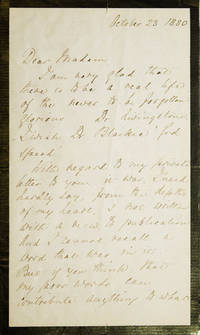 October 23 1880
Dear Madam
I am very glad that
there is to be a real life
of the never to be forgotten
glorious Dr Livingstone
I wish Dr Blaikie God
speed.
With regard to my private
letter to you it was I need
hardly say from the depths
of my heart, & not written
with a view to publication
And I cannot recall a
word that was in it
But if you think that
my poor words can
contribute anything to what